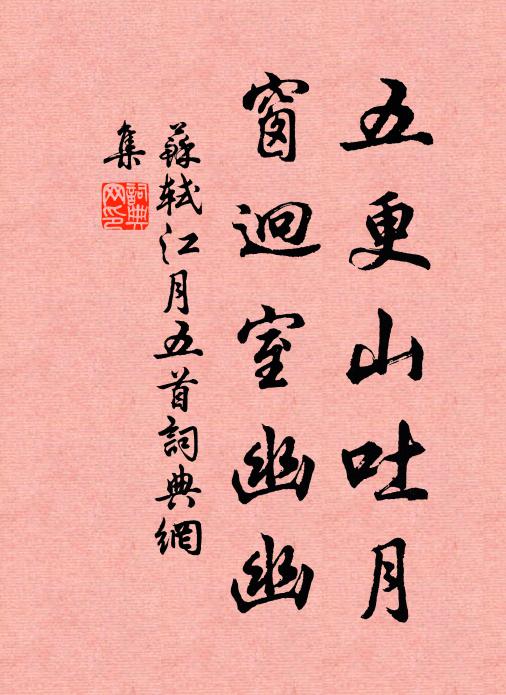 五更山吐月
窗迥室幽幽
蘇軾江月五首詞典網
集
詞典
网印